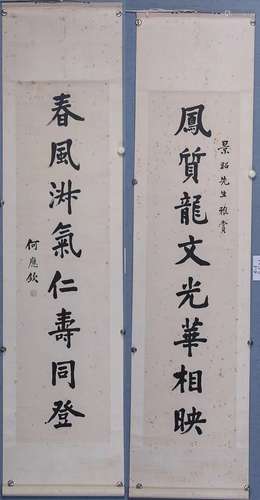 景昭先生雅賞
鳳質龍文光華相映
春風淑氣仁壽同登
何應欽